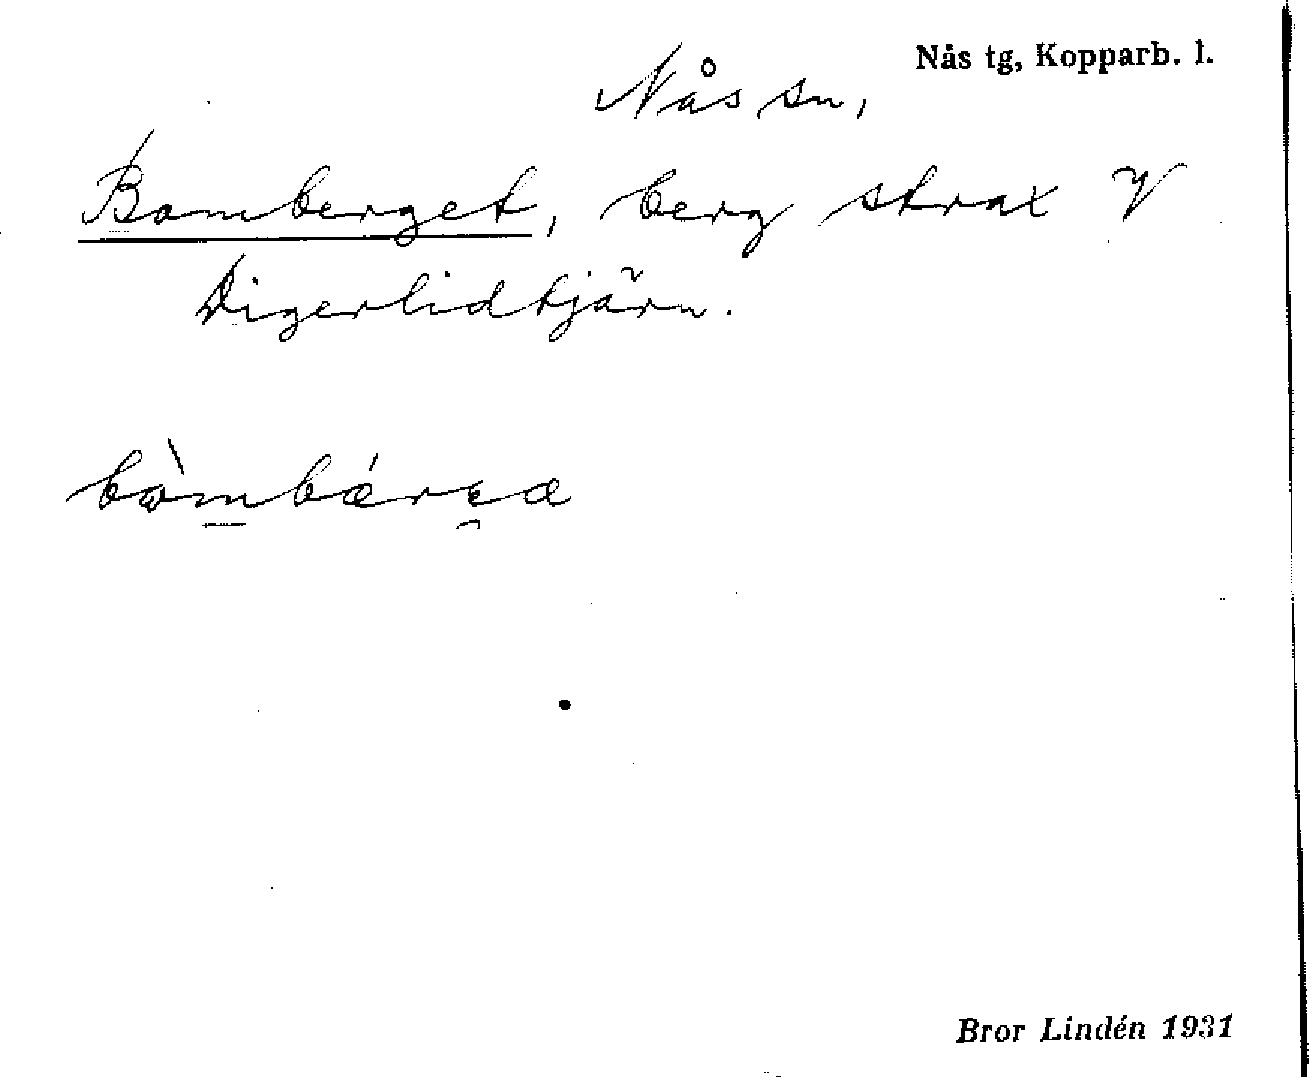 Nås tg, Kopparb. l.
Nås sn,
Bomberget, berg strax V
Digerlidtjärn.
Bror Lindén 1931